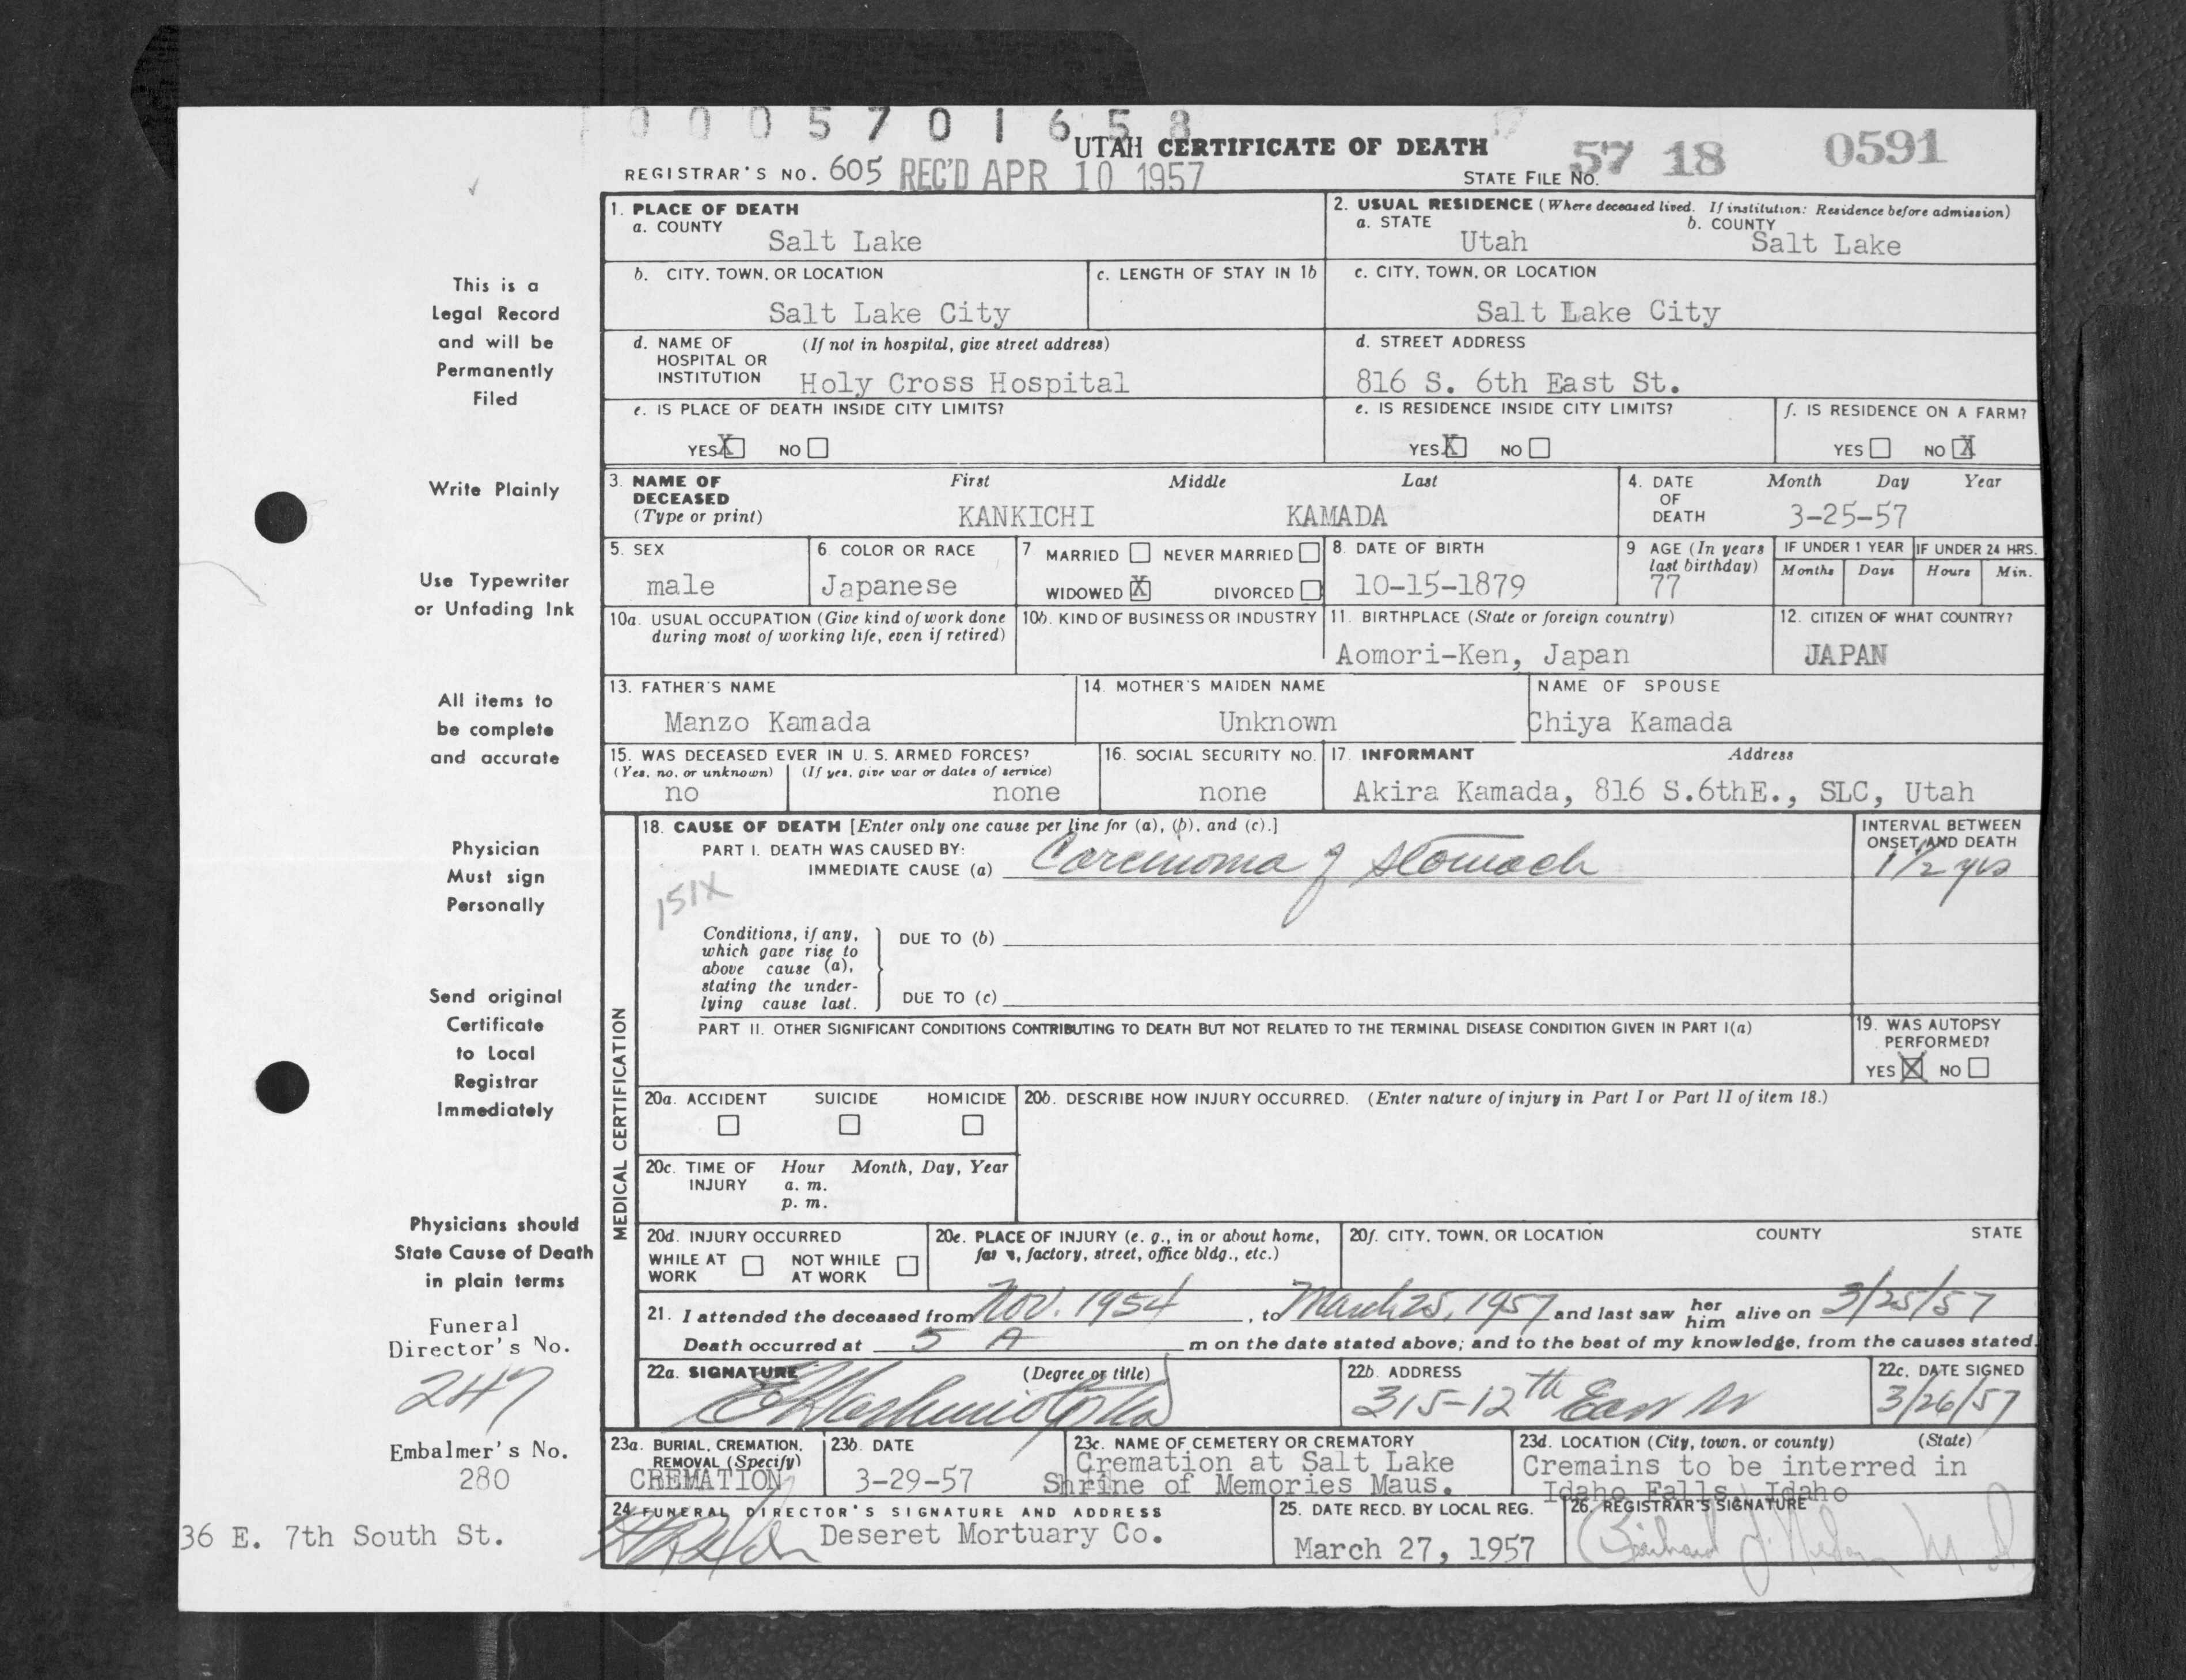 0005701658
UTAH CERTIFICATE OF DEATH
REGISTRAR'S NO. 605 REC'D APR 10 1957
STATE FILE NO. 57 18 0591
1. PLACE OF DEATH
a. COUNTY
Salt Lake
2. USUAL RESIDENCE (Where deceased lived. If institution: Residence before admission)
a. STATE b. COUNTY
Utah Salt Lake
b. CITY, TOWN, OR LOCATION
Salt Lake City
c. LENGTH OF STAY IN 1b
c. CITY, TOWN, OR LOCATION
Salt Lake City
d. NAME OF HOSPITAL OR INSTITUTION (If not in hospital, give street address)
Holy Cross Hospital
d. STREET ADDRESS
816 S. 6th East St.
e. IS PLACE OF DEATH INSIDE CITY LIMITS?
YES X NO
e. IS RESIDENCE INSIDE CITY LIMITS?
YES X NO
f. IS RESIDENCE ON A FARM?
YES NO X
3. NAME OF DECEASED (Type or print) First Middle Last
KANKICHI KAMADA
4. DATE OF DEATH Month Day Year
3-25-57
5. SEX
male
6. COLOR OR RACE
Japanese
7 MARRIED NEVER MARRIED
WIDOWED X DIVORCED
8. DATE OF BIRTH
10-15-1879
9 AGE (In years last birthday)
77
IF UNDER 1 YEAR IF UNDER 24 HRS.
Months Days Hours Min.
10a. USUAL OCCUPATION (Give kind of work done during most of working life, even if retired)
10b. KIND OF BUSINESS OR INDUSTRY
11. BIRTHPLACE (State or foreign country)
Aomori-Ken, Japan
12. CITIZEN OF WHAT COUNTRY?
JAPAN
13. FATHER'S NAME
Manzo Kamada
14. MOTHER'S MAIDEN NAME
Unknown
NAME OF SPOUSE
Chiya Kamada
15. WAS DECEASED EVER IN U. S. ARMED FORCES?
(Yes, no, or unknown) (If yes, give war or dates of service)
no none
16. SOCIAL SECURITY NO.
none
17. INFORMANT Address
Akira Kamada, 816 S.6thE., SLC, Utah
MEDICAL CERTIFICATION
18. CAUSE OF DEATH [Enter only one cause per line for (a), (b), and (c).]
PART I. DEATH WAS CAUSED BY:
IMMEDIATE CAUSE (a) Carcinoma of stomach
INTERVAL BETWEEN ONSET AND DEATH
1 1/2 yrs
151X
Conditions, if any,
which gave rise to
above cause (a),
stating the under-
lying cause last.
DUE TO (b)
DUE TO (c)
PART II. OTHER SIGNIFICANT CONDITIONS CONTRIBUTING TO DEATH BUT NOT RELATED TO THE TERMINAL DISEASE CONDITION GIVEN IN PART I(a)
19. WAS AUTOPSY PERFORMED?
YES X NO
20a. ACCIDENT SUICIDE HOMICIDE
20b. DESCRIBE HOW INJURY OCCURRED. (Enter nature of injury in Part I or Part II of item 18.)
20c. TIME OF INJURY Hour Month, Day, Year
a. m.
p. m.
20d. INJURY OCCURRED
WHILE AT WORK NOT WHILE AT WORK
20e. PLACE OF INJURY (e. g., in or about home, farm, factory, street, office bldg., etc.)
20f. CITY, TOWN, OR LOCATION COUNTY STATE
21. I attended the deceased from Nov. 1954, to March 25, 1957 and last saw her him alive on 3/25/57
Death occurred at 5 A m on the date stated above; and to the best of my knowledge, from the causes stated.
22a. SIGNATURE (Degree or title)
22b. ADDRESS
315-12th East
22c. DATE SIGNED
3/26/57
23a. BURIAL, CREMATION, REMOVAL (Specify)
CREMATION
23b. DATE
3-29-57
23c. NAME OF CEMETERY OR CREMATORY
Cremation at Salt Lake
Shrine of Memories Maus.
23d. LOCATION (City, town, or county) (State)
Cremains to be interred in
Idaho Falls, Idaho
24. FUNERAL DIRECTOR'S SIGNATURE AND ADDRESS
Deseret Mortuary Co.
25. DATE RECD. BY LOCAL REG.
March 27, 1957
26. REGISTRAR'S SIGNATURE
This is a
Legal Record
and will be
Permanently
Filed
Write Plainly
Use Typewriter
or Unfading Ink
All items to
be complete
and accurate
Physician
Must sign
Personally
Send original
Certificate
to Local
Registrar
Immediately
Physicians should
State Cause of Death
in plain terms
Funeral
Director's No.
247
Embalmer's No.
280
36 E. 7th South St.